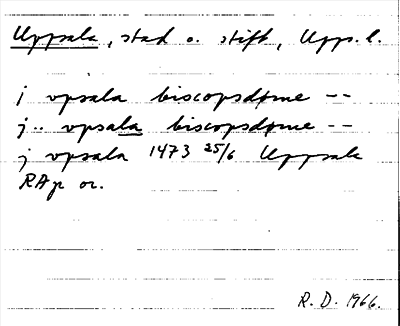 Uppsala, stad o. stift, Upps. l.
j vpsala biscopsdøme --
j .. vpsala biscopsdøme --
j vpsala 1473 25/6 Uppsala
RAp or.
R. D. 1966.